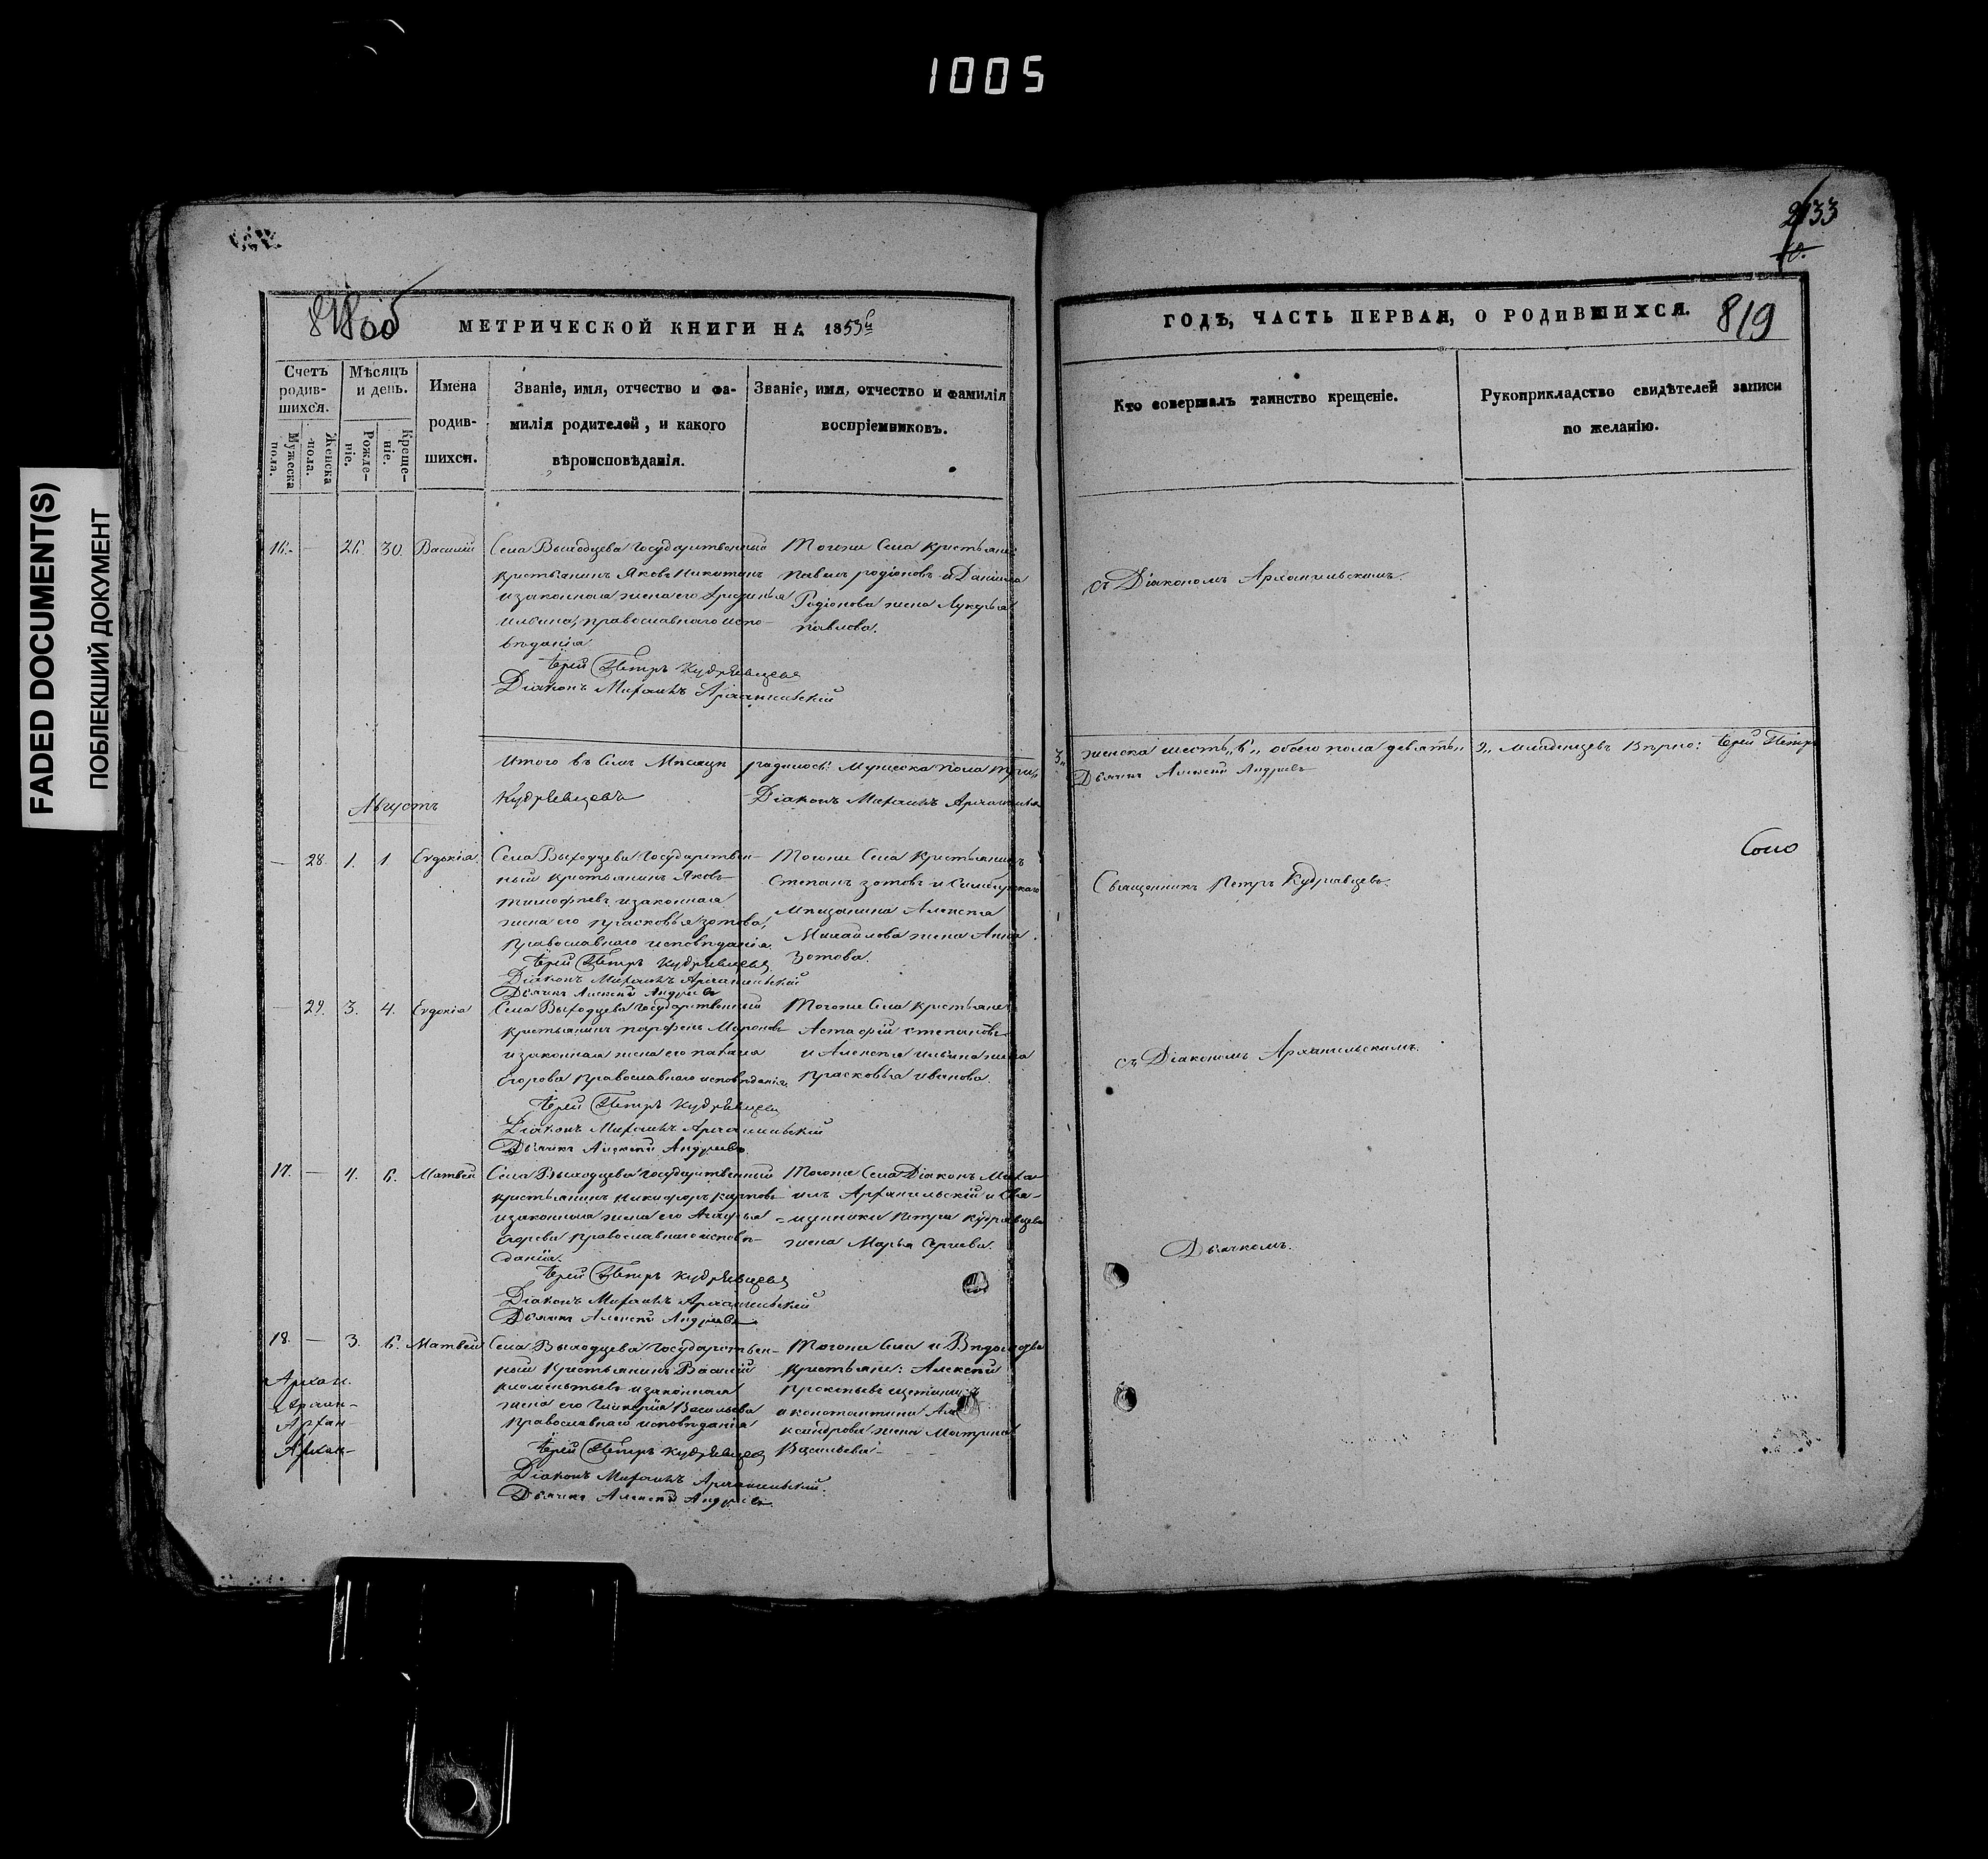 1005
FADED DOCUMENT(S)
ПОБЛЕКШИЙ ДОКУМЕНТ
818об
МЕТРИЧЕСКОЙ КНИГИ НА 1853й
Счетъ родив-шихся.
Мужеска пола.
Женска пола.
Мѣсяцъ и день.
Рожде-ніе.
Креще-ніе.
Имена родив-шихся.
Званіе, имя, отчество и фа-
милія родителей, и какого
вѣроисповѣданія.
Званіе, имя, отчество и фамилія
воспріемниковъ.
16. — 26. 30. Василій
Села Выходцева Государственный
крестьянинъ Яковъ Никитинъ
и законная жена его
Ильина, православнаго испо-
вѣданія
Іерей Петръ Кудрявцевъ
Діаконъ Михаилъ Архангельскій
Тогоже Села крестьяне
Павелъ родіоновъ и Даніила
Родіонова жена Лукерья
Павлова.
Итого въ Семъ Мѣсяцѣ родилось: Мужеска пола три,,
Кудрявцевъ Діаконъ Михаилъ
Августъ
— 28. 1. 1. Евдокія.
Села Выходцева Государствен-
ный крестьянинъ Яковъ
тимофѣевъ и законная
жена его прасковья зотова,
Православнаго исповѣданія.
Іерей Петръ Кудрявцевъ
Діаконъ Михаилъ Архангельскій
Дьячекъ Алексѣй Андреевъ
Тогоже Села крестьянинъ
Степанъ зотовъ и
Мѣщанина Алексѣя
Михайлова жена Анна
Зотова.
— 29. 3. 4. Евдокія
Села Выходцева Государственный
крестьянинъ парфенъ Мироновъ
и законная жена его наталія
Егорова Православнаго исповѣданія.
Іерей Петръ Кудрявцевъ
Діаконъ Михаилъ Архангельскій
Дьячекъ Алексѣй Андреевъ
Тогоже Села крестьяне
Астафій степановъ
и Алексѣя ильина жена
прасковья иванова.
17. — 4. 6. Матвей
Села Выходцева Государственный
крестьянинъ Никифоръ карповъ
и законная жена его
Егорова Православнаго исповѣ-
данія.
Іерей Петръ Кудрявцевъ
Діаконъ Михаилъ Архангельскій
Дьячекъ Алексѣй Андреевъ
Тогоже Села Діаконъ Миха-
илъ Архангельскій и Свя-
щенника Петра Кудрявцева
жена Марья Сергиева.
18. — 3. 6. Матвей
Села Выходцева Государствен-
ный Крестьянинъ Василій
клементьевъ и законная
жена его Гликерія Васильева
Православнаго исповѣданія
Іерей Петръ Кудрявцевъ
Діаконъ Михаилъ Архангельскій.
Дьячекъ Алексѣй Андреевъ
Тогоже Села и
крестьяне: Алексѣй
прокопьевъ
и константина Але
ксандрова жена Матрина
Васильева
Архан.
Архан-
Архан-
Архан-
ГОДЪ, ЧАСТЬ ПЕРВАЯ, О РОДИВШИХСЯ.
819
Кто совершалъ таинство крещеніе.
Рукоприкладство свидѣтелей записи
по желанію.
съ Діакономъ Архангельскимъ.
3,, женска шесть,, 6,, обоего пола девять,, 9,, младенцевъ Вѣрно: Іерей Петръ
Дьячекъ Алексѣй Андреевъ
Священникъ Петръ Кудрявцевъ.
съ Діакономъ Архангельскимъ.
Дьячкомъ.